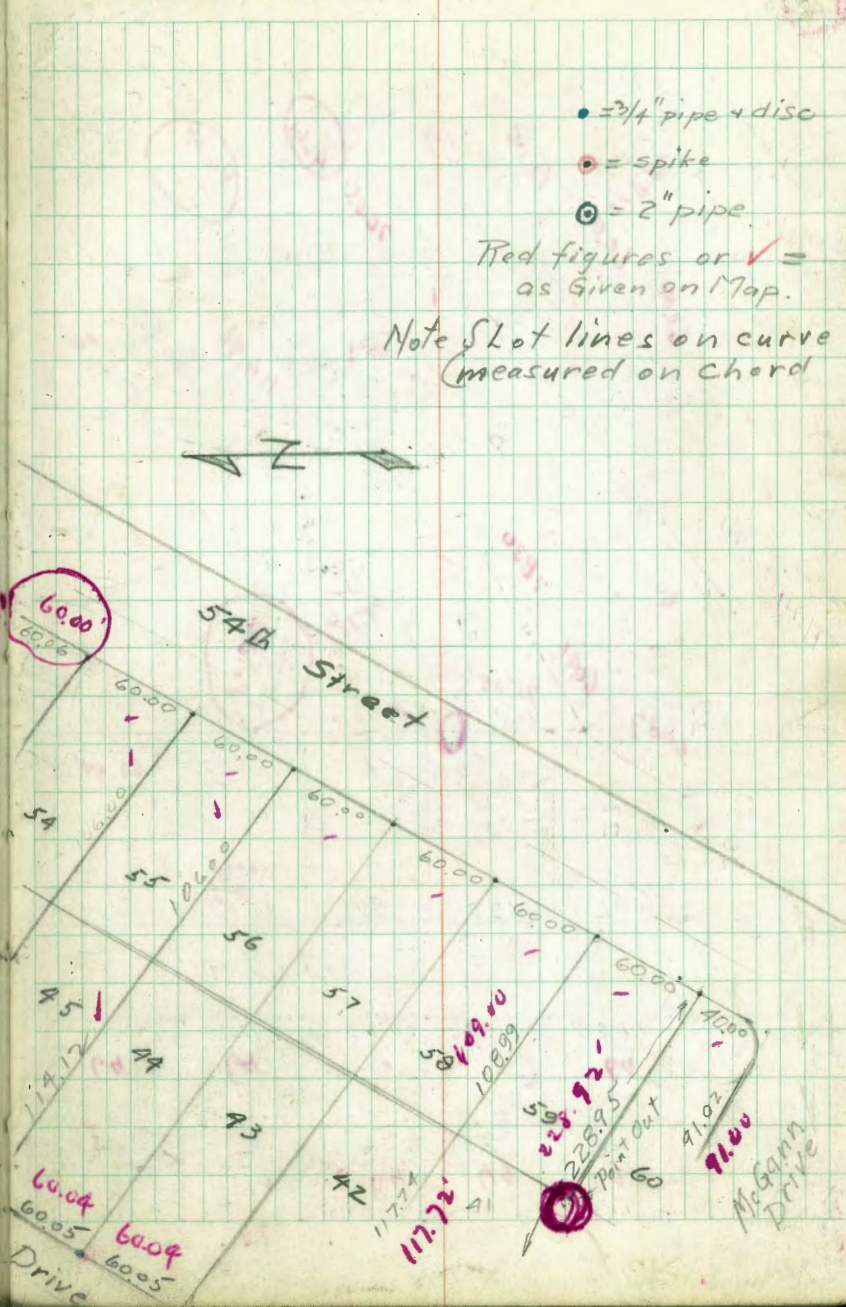 = 3/4" pipe & disc
= spike
= 2" pipe
Red figures or ✓ =
as Given on Map.
Note Lot lines on curve
measured on Chord
N
54th Street
60.00'
60.06
60.00
60.00
60.00
60.00
60.00
60.00
40.00
54
55
106.00
56
57
58
109.00
108.99
59
228.92
228.95
Point Out
60
91.02
91.00
McGann
Drive
45
114.12
44
43
42
117.74
117.72'
41
60.04
60.05
60.04
60.05
Drive